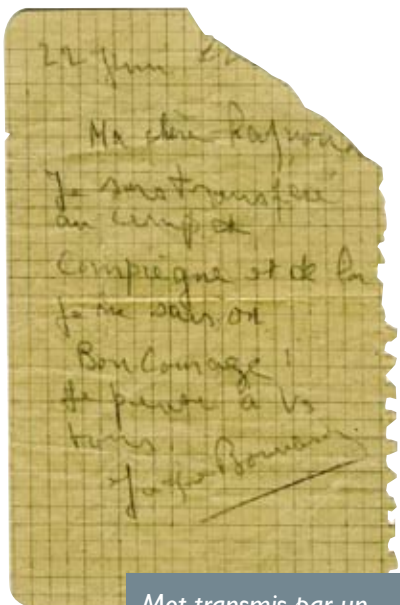 22 Juin
Ma chère
Je suis transféré
au camp de
Compiègne et de la
je ne sais où
Bon Courage !
Je pense à Vs
tous.
Mot transmis par un